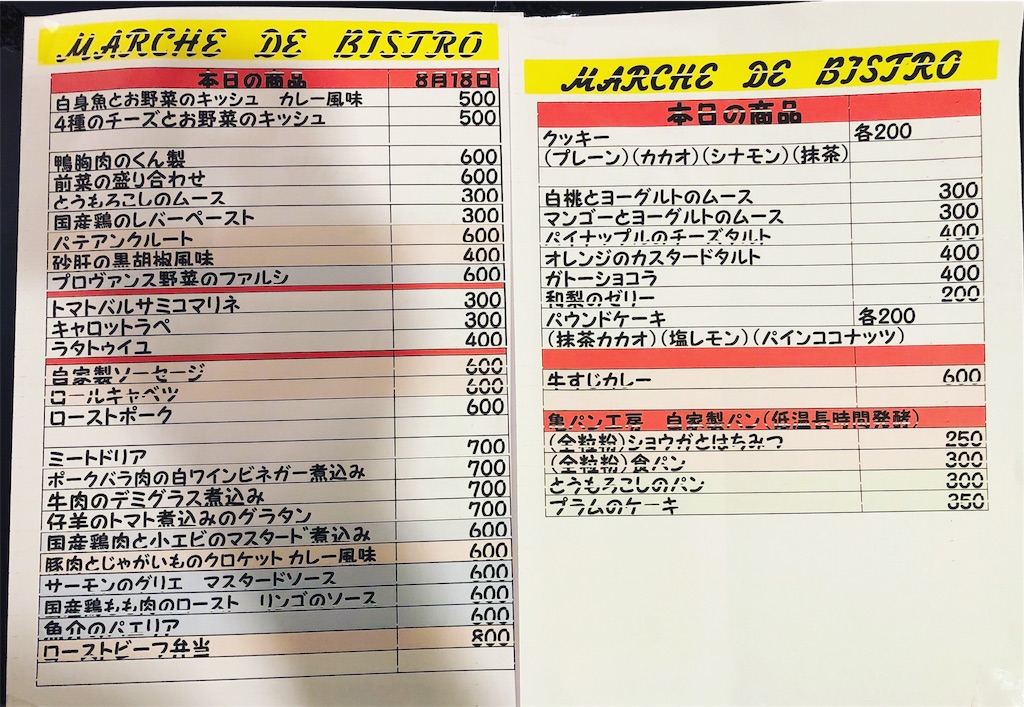 MARCHE DE BISTRO
本日の商品 8月18日
白身魚とお野菜のキッシュ カレー風味 500
4種のチーズとお野菜のキッシュ 500
鴨胸肉のくん製 600
前菜の盛り合わせ 600
とうもろこしのムース 300
国産鶏のレバーペースト 300
パテアンクルート 600
砂肝の黒胡椒風味 400
プロヴァンス野菜のファルシ 600
トマトバルサミコマリネ 300
キャロットラペ 300
ラタトゥイユ 400
自家製ソーセージ 600
ロールキャベツ 600
ローストポーク 600
ミートドリア 700
ポークバラ肉の白ワインビネガー煮込み 700
牛肉のデミグラス煮込み 700
仔羊のトマト煮込みのグラタン 700
国産鶏肉と小エビのマスタード煮込み 600
豚肉とじゃがいものクロケット カレー風味 600
サーモンのグリエ マスタードソース 600
国産鶏もも肉のロースト リンゴのソース 600
魚介のパエリア 600
ローストビーフ弁当 800
MARCHE DE BISTRO
本日の商品
クッキー 各200
(プレーン)(カカオ)(シナモン)(抹茶)
白桃とヨーグルトのムース 300
マンゴーとヨーグルトのムース 300
パイナップルのチーズタルト 400
オレンジのカスタードタルト 400
ガトーショコラ 400
和梨のゼリー 200
パウンドケーキ 各200
(抹茶カカオ)(塩レモン)(パインココナッツ)
牛すじカレー 600
亀パン工房 自家製パン(低温長時間発酵)
(全粒粉)ショウガとはちみつ 250
(全粒粉)食パン 300
とうもろこしのパン 300
プラムのケーキ 350